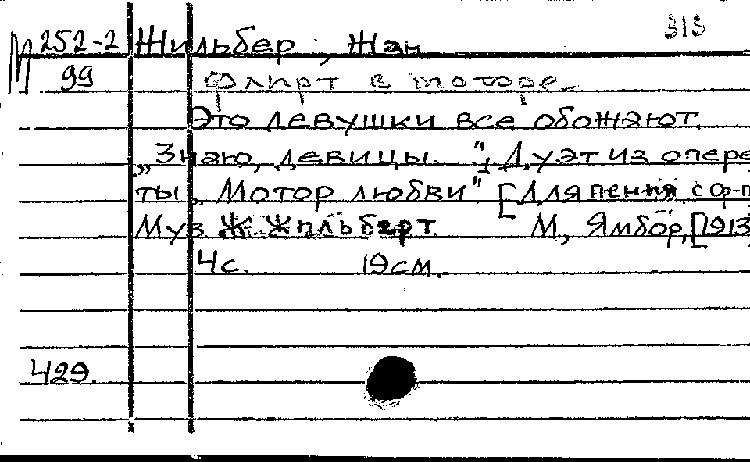 313
М 252-2 Жильбер, Жан
99 Флирт в моторе.
Это девушки все обожают.
„Знаю, девицы..."; Дуэт из опере
ты „Мотор любви" [Для пения с ф-п
Муз. Ж. Жильберт. М, Ямбор, [1913
4с. 19см.
429.